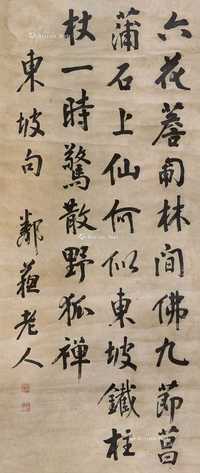 六花薝蔔林間佛九節菖
蒲石上仙何似東坡鐵柱
杖一時驚散野狐禪
東坡句 鄰蘇老人